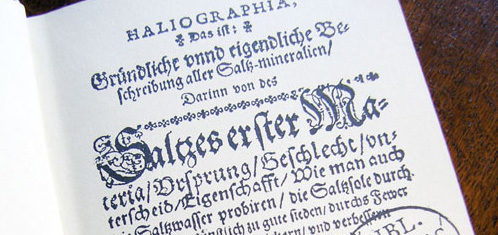 HALIOGRAPHIA,
Das ist:
Gründliche vnnd eigendliche Be-
schreibung aller Saltz-mineralien/
Darinn von des
Saltzes erster Ma-
teria/Vrsprung/Geschlecht/vn-
terscheid/Eigenschafft/Wie man auch
Saltzwasser probiren/die Saltzsole durch
zu gute sieden/durchs Fewer
vnd verbessern
BIBL.